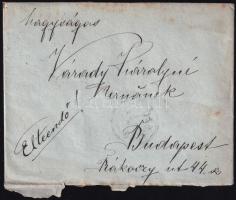 Nagyságos
Várady Károlyné
Urnőnek
Elteendő!
Budapest
Rákóczy ut 44. sz